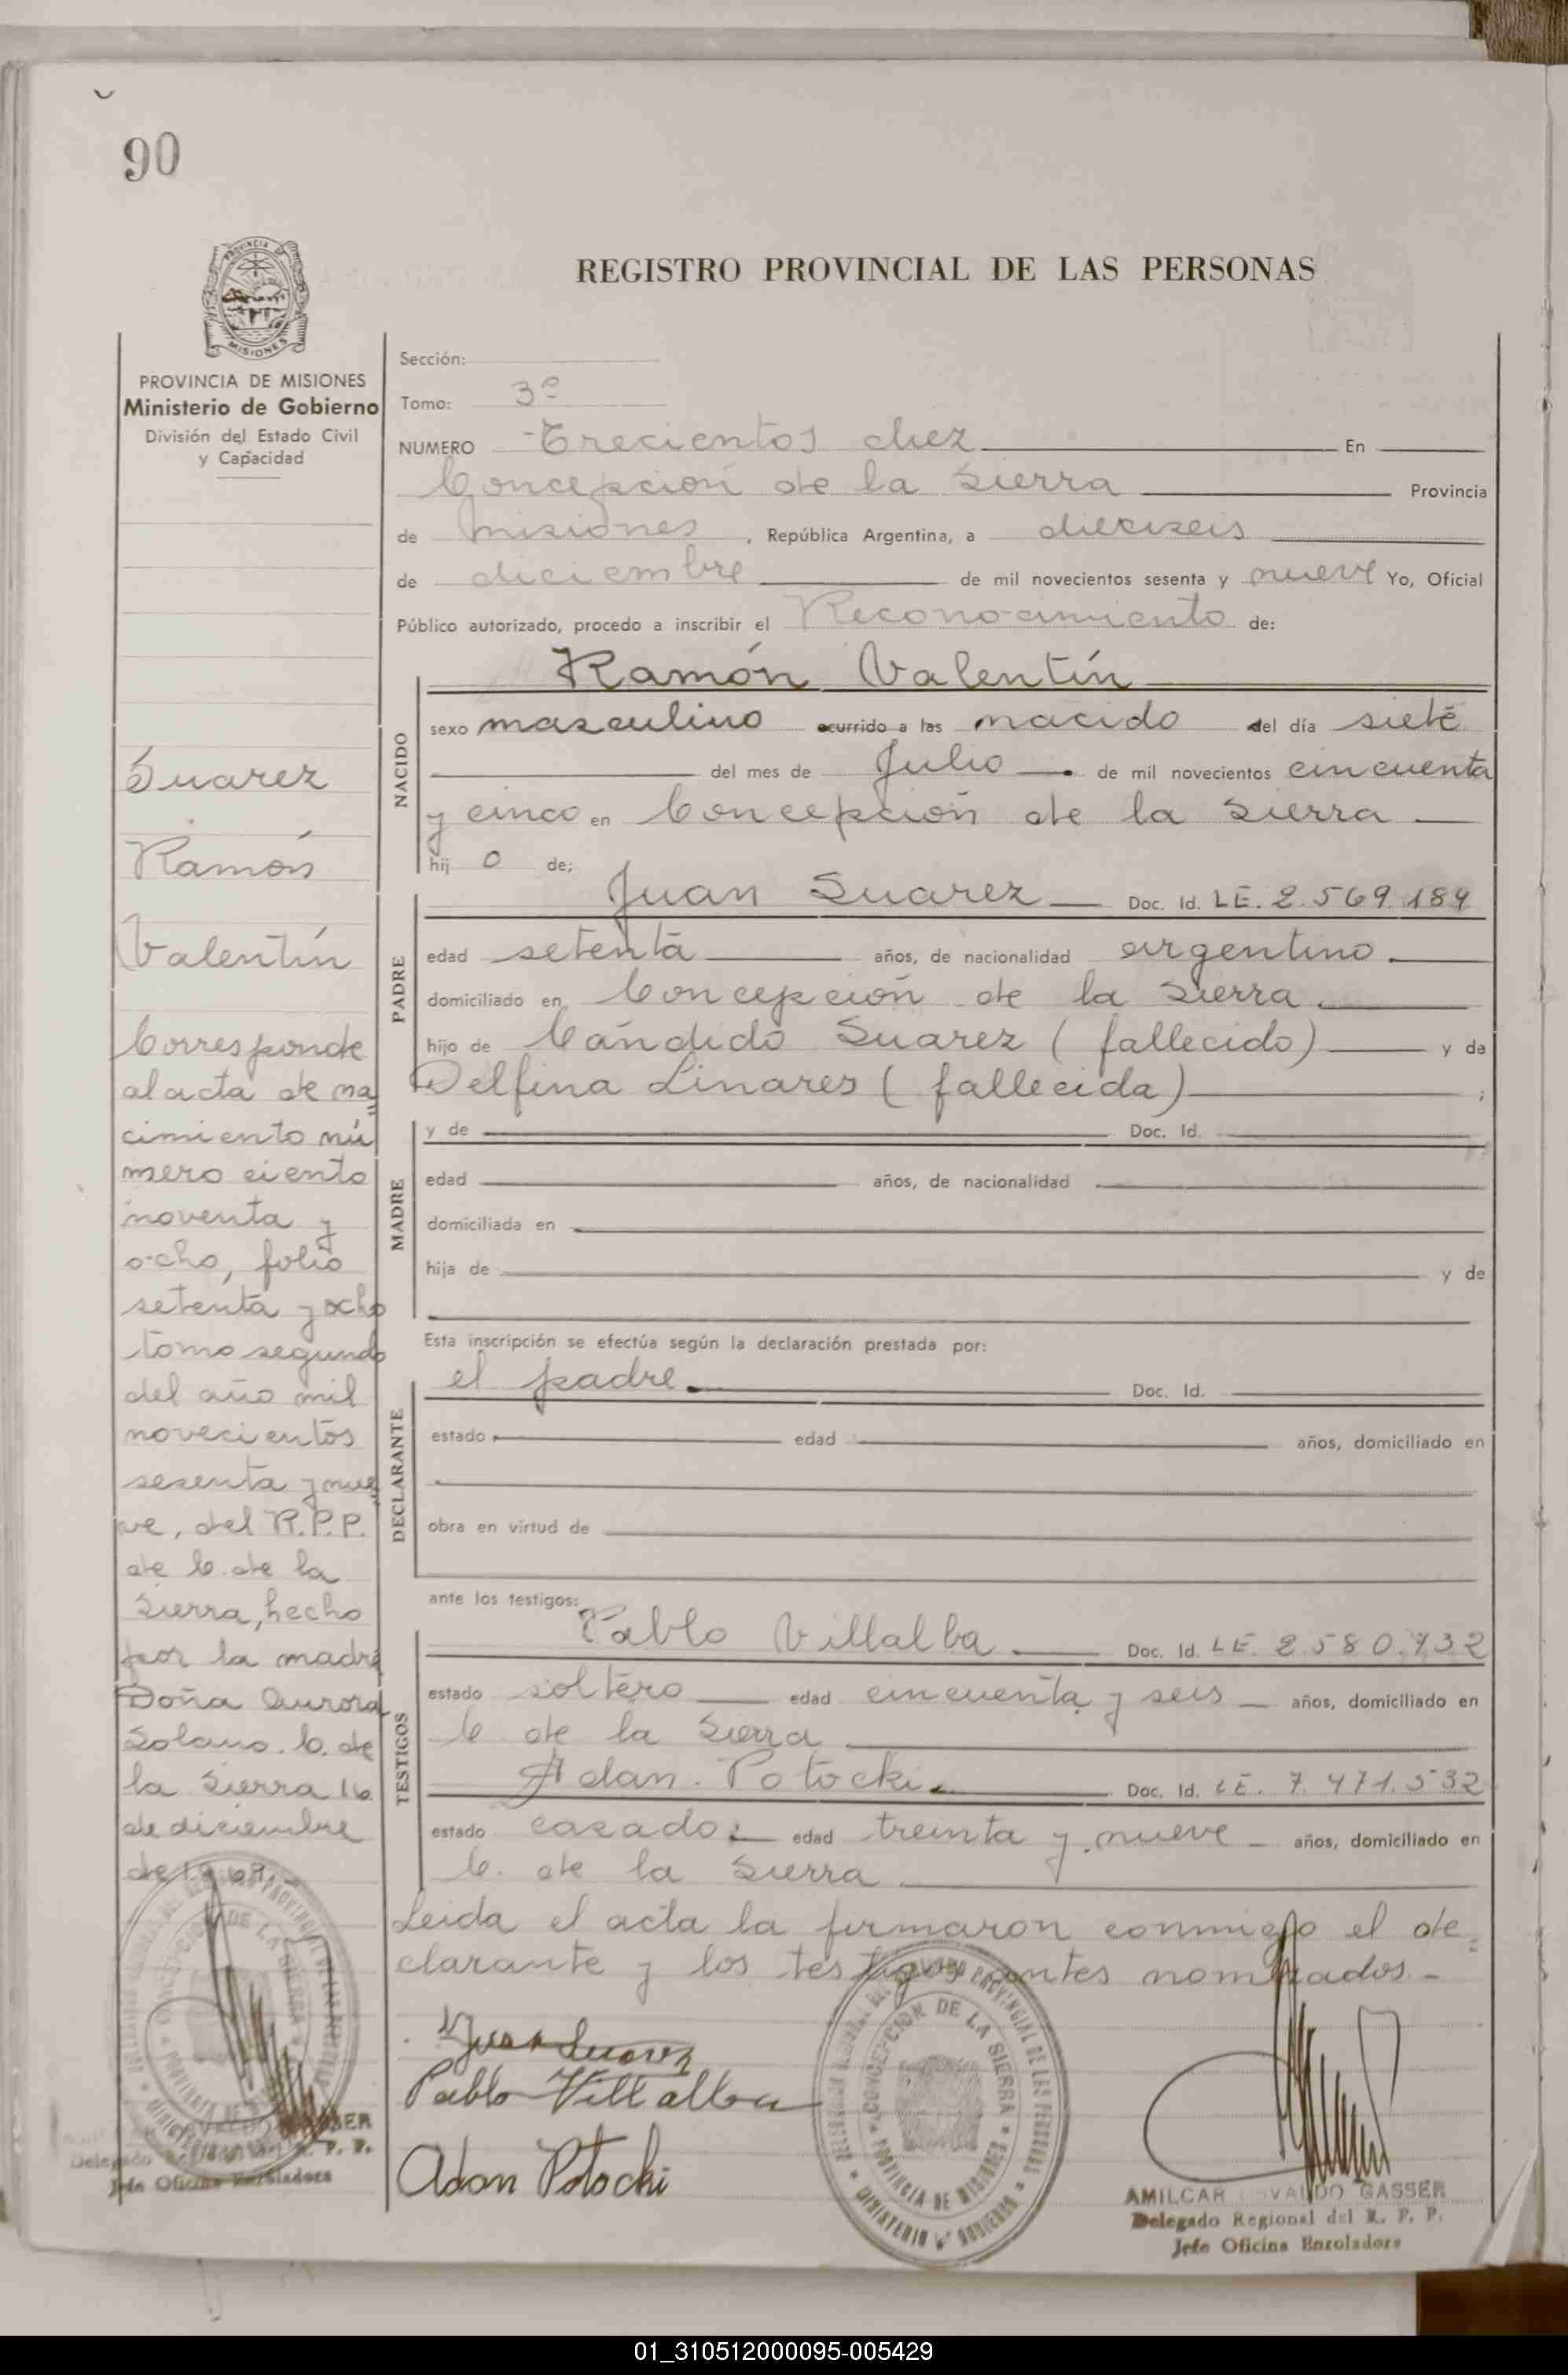 90
REGISTRO PROVINCIAL DE LAS PERSONAS
PROVINCIA DE MISIONES
Ministerio de Gobierno
División del Estado Civil
y Capacidad
Sección:
Tomo: 3º
NUMERO Trecientos diez En
Concepción de la Sierra Provincia
de Misiones, República Argentina, a dieciseis
de diciembre de mil novecientos sesenta y nueve Yo, Oficial
Público autorizado, procedo a inscribir el Reconocimiento de:
NACIDO
Ramón Valentín
sexo masculino ocurrido a las nacido del día siete
del mes de Julio de mil novecientos cincuenta
y cinco en Concepción de la Sierra
hij o de;
PADRE
Juan Suarez Doc. Id. LE. 2.569.189
edad setenta años, de nacionalidad argentino.
domiciliado en Concepción de la Sierra.
hijo de Cándido Suarez (fallecido) y de
Delfina Linares (fallecida) ;
MADRE
y de Doc. Id.
edad años, de nacionalidad
domiciliada en
hija de y de
Esta inscripción se efectúa según la declaración prestada por:
DECLARANTE
el padre. Doc. Id.
estado edad años, domiciliado en
obra en virtud de
ante los testigos:
TESTIGOS
Pablo Villalba Doc. Id. LE. 2.580.732
estado soltero edad cincuenta y seis años, domiciliado en
C. de la Sierra
Adan Potocki. Doc. Id. LE. 7.471.532
estado casado edad treinta y nueve años, domiciliado en
C. de la Sierra
Leida el acta la firmaron conmigo el de=
clarante y los testigos antes nombrados.-
Suarez
Ramón
Valentín
Corresponde
al acta de na=
cimiento nú
mero ciento
noventa y
ocho, folio
setenta y ocho
tomo segundo
del año mil
novecientos
sesenta y nue=
ve, del R.P.P.
de C. de la
Sierra, hecho
por la madre
Doña Aurora
Solano. C. de
la Sierra 16
de diciembre
de 1969.-
Juan Suarez
Pablo Villalba
Adan Potocki
CONCEPCION DE LA SIERRA
PROVINCIA DE MISIONES
MINISTERIO DE GOBIERNO
AMILCAR OSVALDO GASSER
Delegado Regional del R. P. P.
Jefe Oficina Enroladora
Jefe Oficina Enroladora
01_310512000095-005429